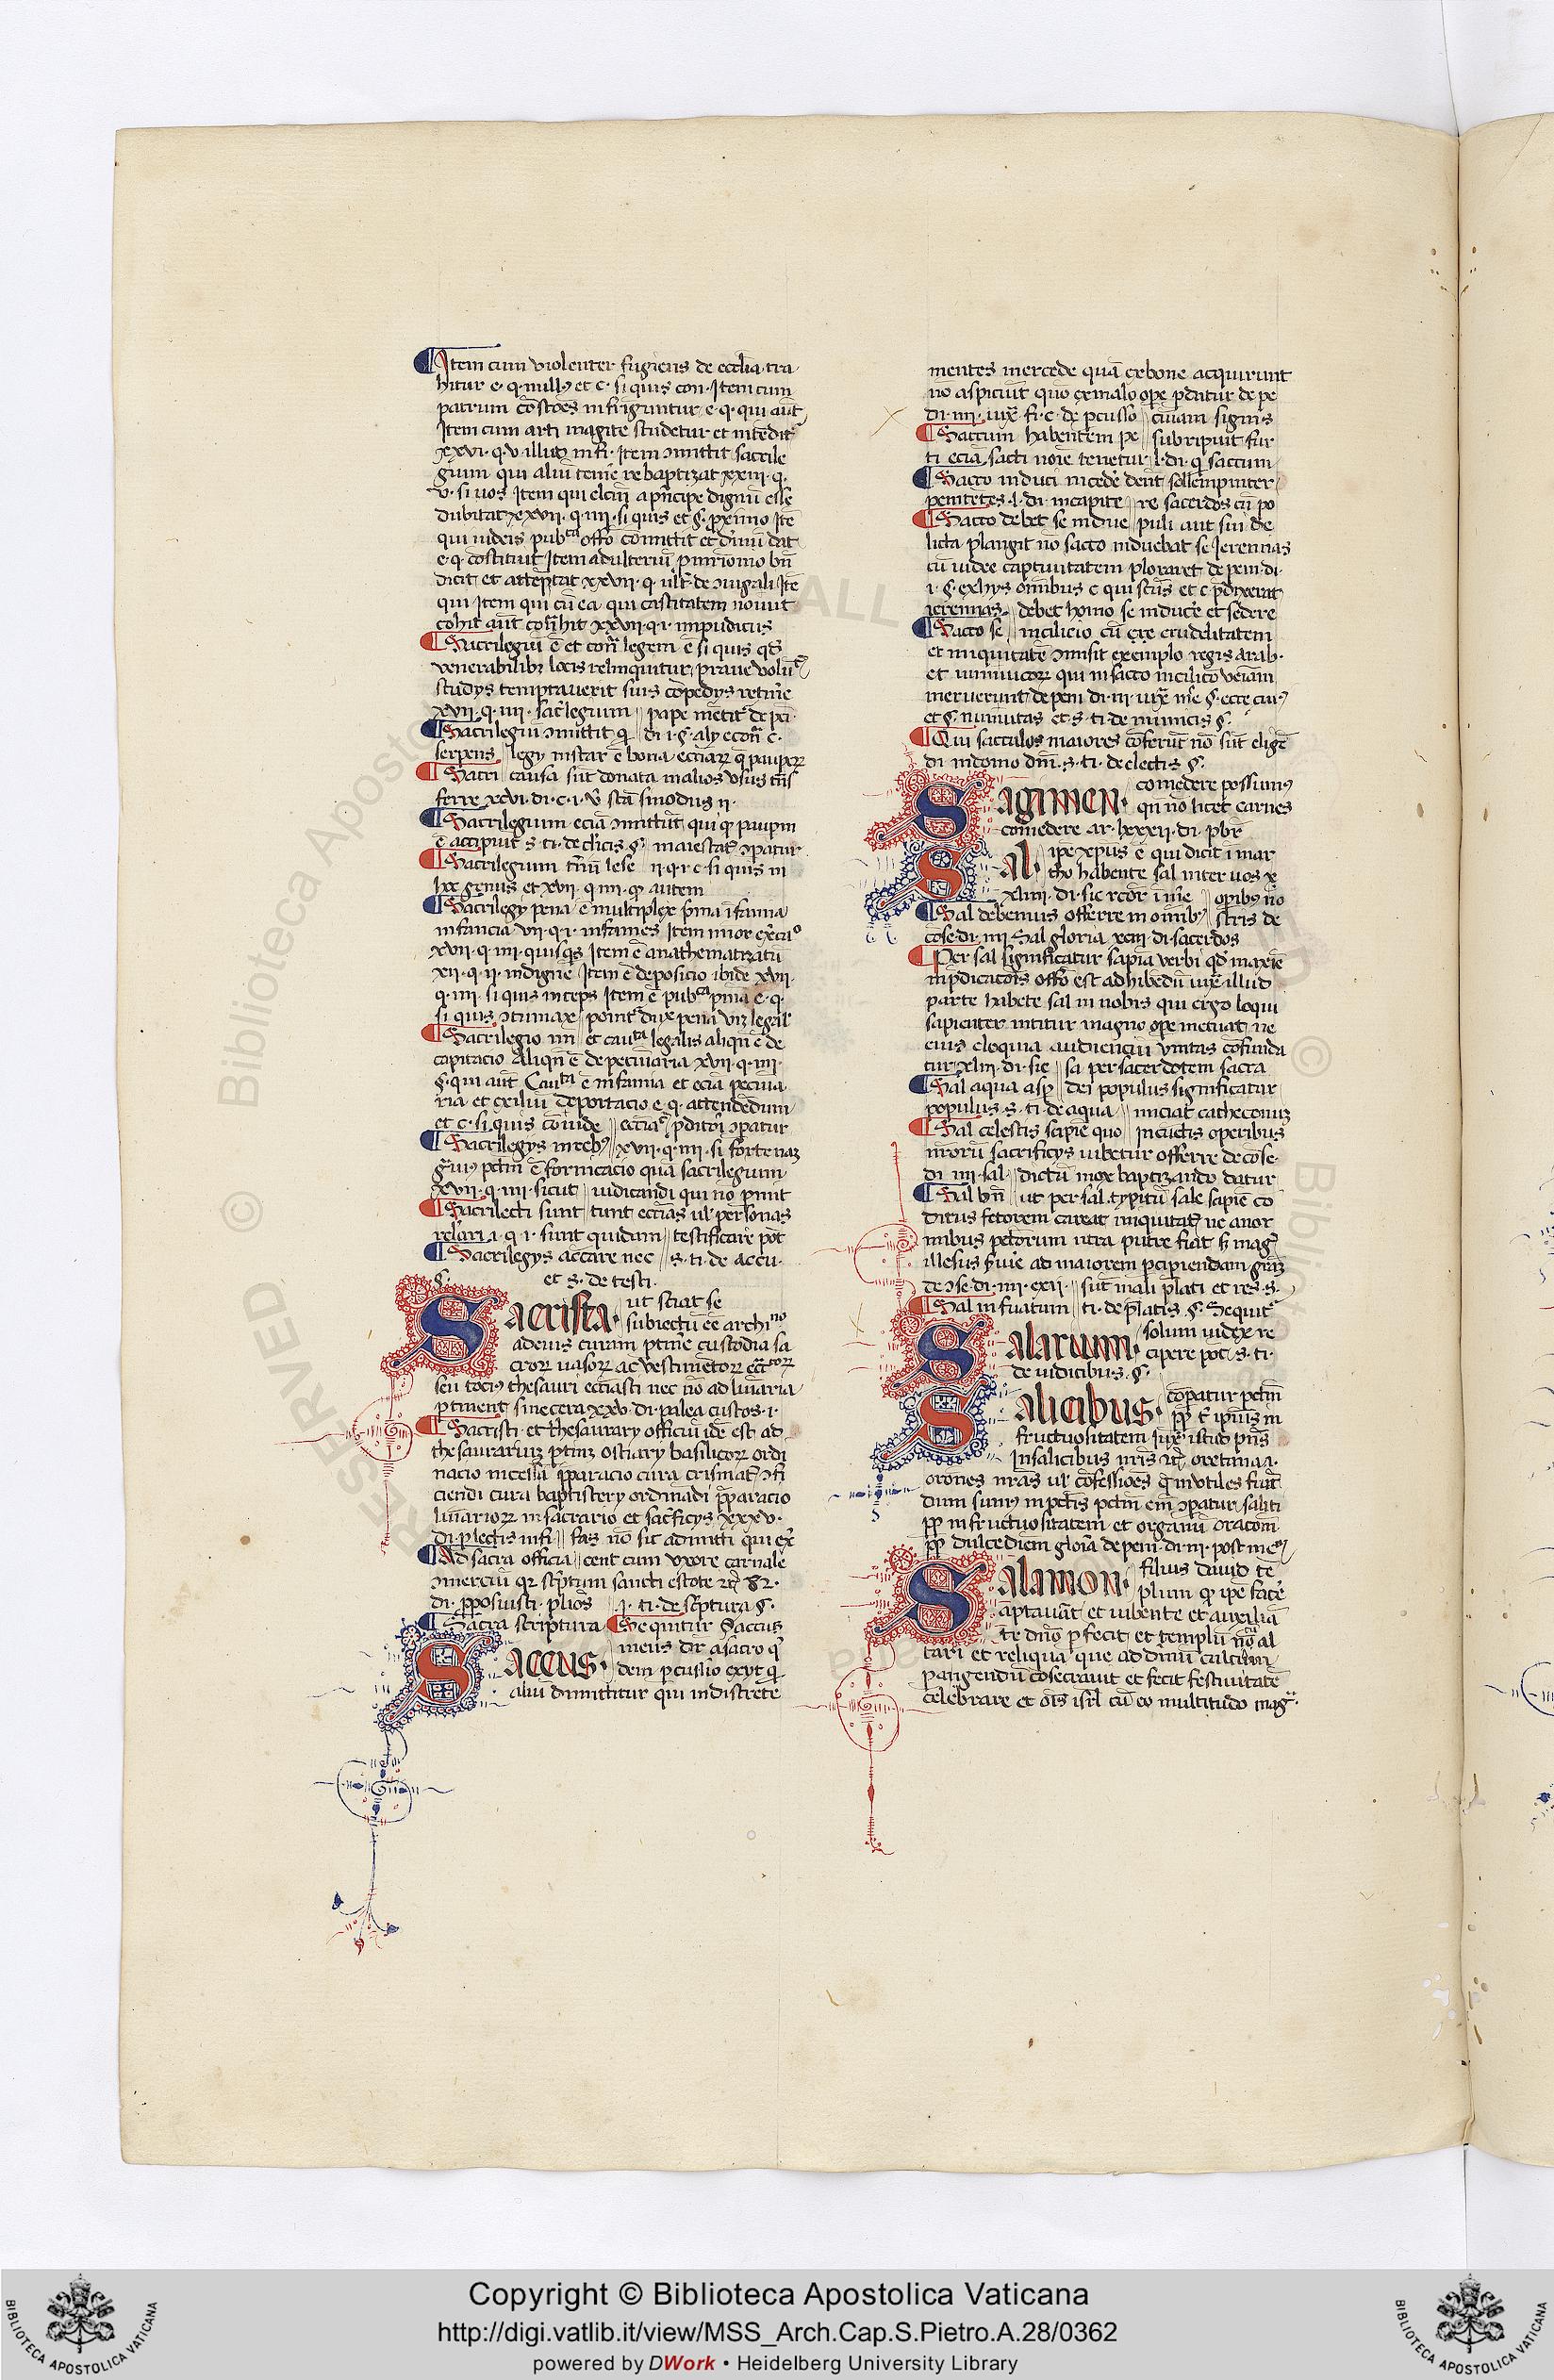 Item cum violenter fugiens de ecclīa tra
hitur e· q· null9 et c· si quis con· Item cum
patrum cōstōes infringuntur e· q· qui aut̄
Item cum arti magice studetur et intēdit
xxvi· q· v· illud in fi· Item ɔmittit sacrile
gium qui aliū temē rebaptizat xxiii· q·
v· si uos Item qui elcūm a pn̄cipe dignū esse
dubitat xxvii· q· iiii· si quis et §· proximo Itē
qui iudeis pub offō cōmittit et dīmū dat
e· q· cōstituit Item adulteriū
dicit et attēptat xxvii· q· ult̄· de ɔiugali Itē
qui Item qui cū ea qui castitatem nouit
cohit aut̄ xxvii· q· i· impudicus
Sacrilegiū ē et cont̄ legem ē si quis qd̄
venerabilibꝫ locis relinquitur praue volūt
studys temptauerit suis cōpedys retinē
xvii· q· iiii· sac̄legium pape mētit̄ de pēi·
Sacrilegiū ɔmittit q di· i· §· aly econt̄ c·
serpens legy instar ē bona ecctīaꝝ q pauperꝝ
Sacri causa sūt donata in alios usus
ferre xcvi· di· c· i· v̄ stā sinodus ii·
Sacrilegium eciā ɔmittūt qui q paupm
ē accipiūt s· ti· de cl̄icis §· maiestat̄ ɔpatur
Sacrilegium lese ii· q· i· c· si quis in
hoc genus et xvii· q· iiii· q autem
Sacrilegy pena ē multiplex p̄ma īfamia
infancia vii· q· i· infames Item
xvii· q· iiii· quisqs Item ē anathematizatū
xii· q· ii· indigne Item ē deposicio ibidē xvii·
q· iiii· si quis inceps Item ē pub pena e· q·
si quis ɔtumax point̄ dux pena viz legal̄
Sacrilegio im̄ et cau legalis aliqn̄ ē de
capitacio aliqn̄ ē de pecuniaria xvii· q· iiii·
§· qui aut̄ Cau ē infamia et eciā pecunia
ria et exiliū deportacio e· q· attendendum
et c· si quis cōuide ecctīa p̄ditori ɔpatur
Sacrilegys in reb9 xvii· q· iiii· si forte nam
gu9 pctm̄ ē fornicacio quā sacrilegium
xvii· q· iiii· sicut iudicandi qui nō pmit
Sacrilechi sunt tunt ecctīas ul̄ personas
relari i· q· i· sunt quidam testificare pot̄
Sacrilegys accare nec s· ti· de accu·
§· et s· de testi·
Sacrista· ut sciat se
subiectū ee archi no
adeius curam ptinē custodia sa
croꝝ uasoꝝ ac vestimētoꝝ
seu toci9 thesauri ecctīasti nec nō ad luīaria
ptinent sine cera xxv· di· palea custos· i·
Sacristi et thesaurary officiū idē est ad
thesaurariuꝫ ptinꝫ ostiary basilicoꝝ ordi
nacio incessā p̄paracio cura crismat̄ ɔfi
ciendi cura baptistery ordinādi p̄paracio
luīarioꝝ in sacrario et sac̄ficys xxxv·
di· plectis in fi· fas nō sit admitti qui ex̄
Ad sacra officia cent cum uxore carnale
ɔmerciū qꝛ sc̄ptum sancti estote
di· p̄posuisti· plīos i· ti· de sc̄ptura §·
Sacra scriptura Sequitur Saccus
Saccus· meus dr̄ a sacro q
dem p̄cussio exyt q
aliū dimittitur qui indiscrete
mentes mercede quā ex bone acquirunt
nō aspiciūt quō ex malo ope p̄datur de pe
di· iiii· iux̄ fi· c· de p̄cusso ciuiam signis
Saccum habentem pe subripuit fur
ti eciā sacti noīe tenetur l· di· q saccum
Sacco induci incedē debent sollempniter
penitētes l· di· in capite re sacerdos cū po
Sacco debet se indue puli aut sui de
licta plangit nō sacco induebat se Ieremias
cū iudee captiuitatem ploraret de peni· di·
i· §· ex hys omībus c· qui scūs et c· p̄dixerat
ieremias debet homo se induce et sedere
Sacco se in cilicio cū ex̄e crudelitatem
et iniquitatē ɔmisit exemplo regis arab·
et inimicoꝝ qui in sacco in cilico veniam
meruerunt de peni· di· iii· §· ecce cui9
et §· niniuitas et s· ti· de inimicis §·
Qui sacculos maiores cōferūt nō sūt eligēd
di· in domo dm̄· s· ti· de electis §·
Sagimen· comedere possum9
qn̄ nō licet carnes
comedere ar· lxxxii· di· pbr̄
Sal ipē xp̄us ē qui dicit ī mar
cho habente sal inter uos x
xliii· di· sic rector in fi opib9 nō
Sal debemus offerre in omībꝫ stris de
cōse· di· iiii· Sal gloria xciii· di· sacerdos
Per sal significatur sapīa verbi qd̄ maxīe
in p̄dicatoris offō est adhibendū iux̄ illud
parte habete sal in nobis qui ergo loqui
sapienter nititur magno ope metuat ne
eius eloquia audienciū unitas cōfunda
tur xliii· di· sic sa per sacerdotem sacra
Sal aqua asp̄ dei populus significatur
populus s· ti· de aqua iniciat cathecominꝫ
Sal celestis sapīe quo in cūctis operibus
nr̄orū sacrificys iubetur offerre de cōse·
di· iiii· sal dictū mox baptizando datur
Sal bn̄ ut per sal typitū sale sapīe co
ditus fetorem careat iniquitat̄ ne a
mibus pctōrum ultra putre fiat s mag
illesus s̄uiē ad maiorem pcipiendam grāꝫ
de ɔse· di· iiii· ex ii· sūt mali p̄lati et res· s·
Sal infuatum ti· de p̄latis §· Sequit̄
Salarium· solum iudex re
cipere pot̄ s· ti·
de iudicibus §·
Salicibus· cōpatur pctm̄
pp̄ t̄ ipius in
fructuositatem iux̄ istud p̄ns
In salicibus nr̄is
orōnes nr̄as ul̄ cōfessiōes q̄ inutiles fiūt
dum sum9 in pctīs pctm̄ em̄ ɔpatur saliti
pp̄ infructuositatem et organū oracōni
pp̄ dulcediem gloīa de peni· di· iii· post me
Salamon· filius dauid tē
plum q ipe facē
aptauāt et iubente et auxiliā
te dn̄o pfecit et templū al
tari et reliqua que ad dīnū cultum
pangendū cōsecrauit et fecit festiuitatē
celebrare et oīs isr̄l cū eo multitudo mag
Copyright © Biblioteca Apostolica Vaticana
http://digi.vatlib.it/view/MSS_Arch.Cap.S.Pietro.A.28/0362
powered by DWork • Heidelberg University Library
BIBLIOTECA APOSTOLICA VATICANA
BIBLIOTECA APOSTOLICA VATICANA